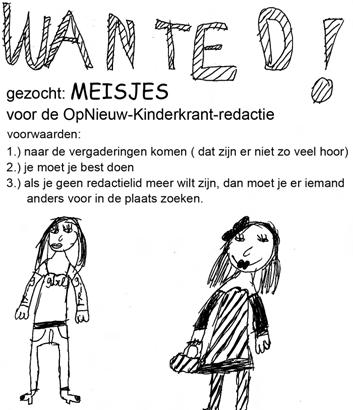 WANTED!
gezocht: MEISJES
voor de OpNieuw-Kinderkrant-redactie
voorwaarden:
1.) naar de vergaderingen komen ( dat zijn er niet zo veel hoor)
2.) je moet je best doen
3.) als je geen redactielid meer wilt zijn, dan moet je er iemand
anders voor in de plaats zoeken.